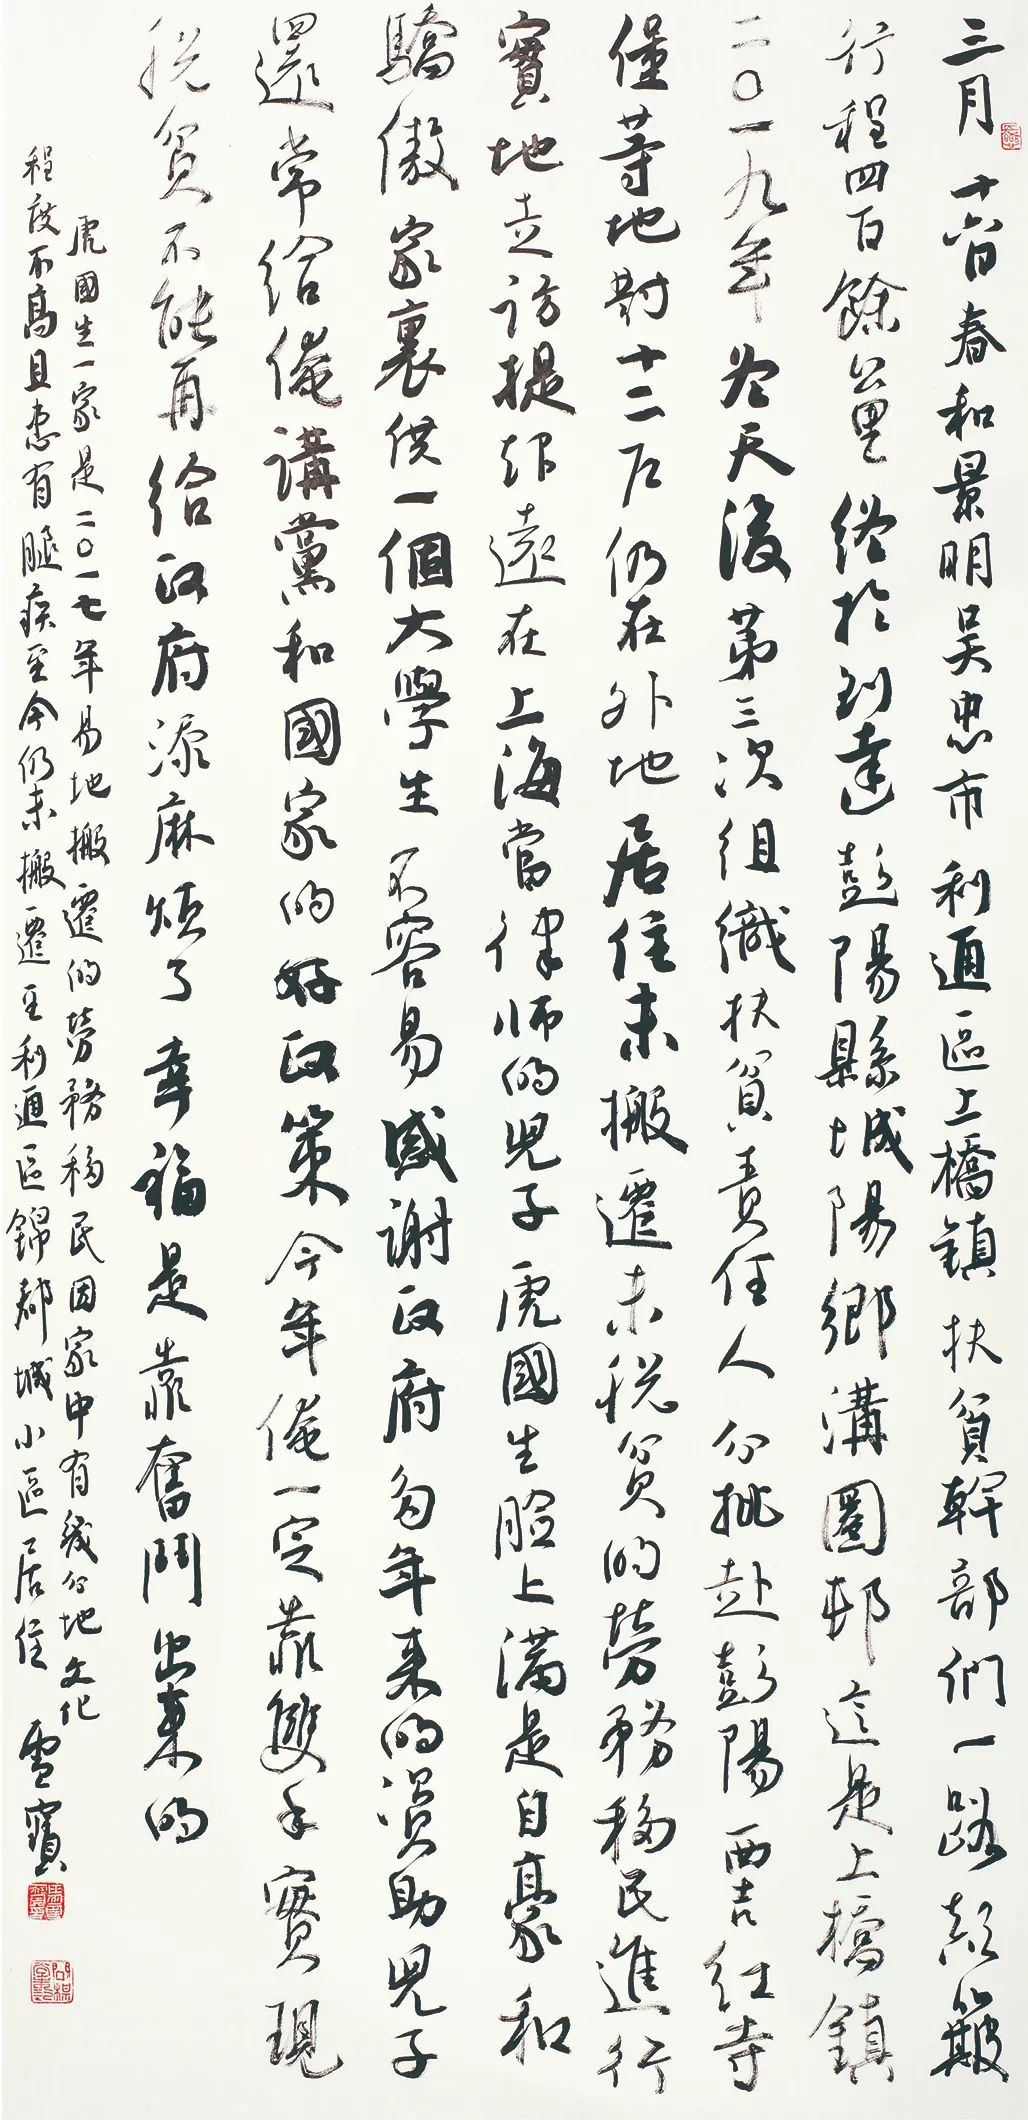 三月十六日春和景明吳忠市利通區上橋鎮扶貧幹部們一路顛簸
行程四百餘公里終於到達彭陽縣城陽鄉溝圈邨這是上橋鎮
二〇一九年冬天後第三次組織扶貧責任人分批赴彭陽西吉紅寺
堡等地對十二户仍在外地居住未搬遷未脱貧的勞務移民進行
實地走訪提起遠在上海當律師的兒子虎國生臉上滿是自豪和
驕傲家裏供一個大學生不容易感謝政府多年来的資助兒子
還常给俺講黨和國家的好政策今年俺一定靠雙手實現
脱貧不能再给政府添麻煩了幸福是靠奮鬥出来的
虎國生一家是二〇一七年易地搬遷的勞務移民因家中有幾分地文化
程度不高且患有腿疾至今仍未搬遷至利通區錦都城小區居住 雪寶